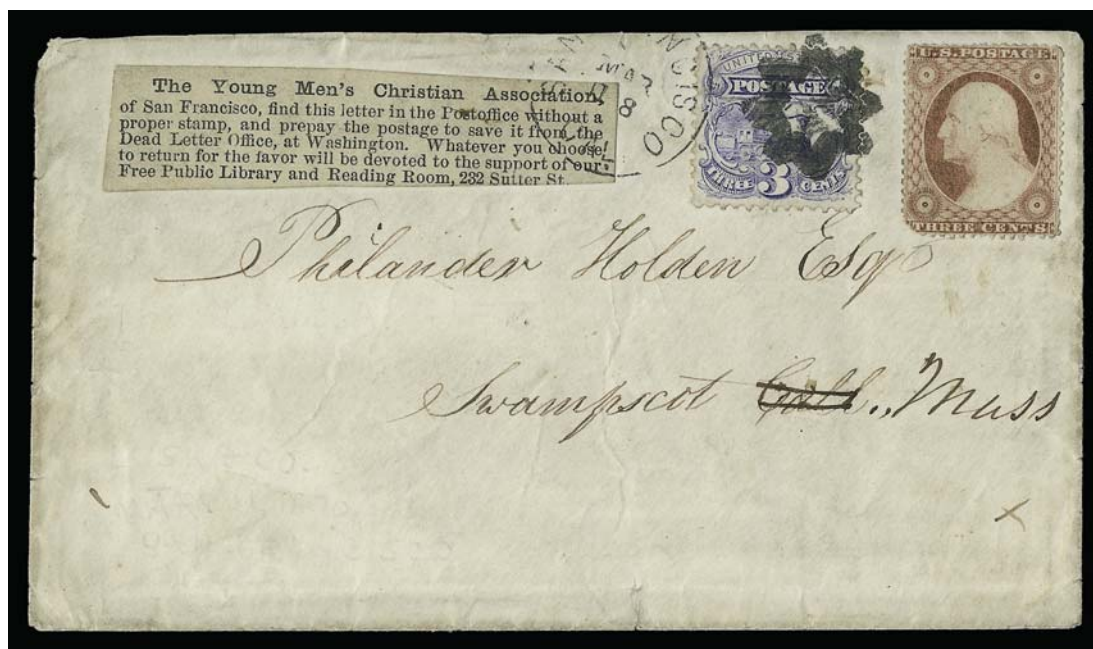 The Young Men's Christian Association,
of San Francisco, find this letter in the Postoffice without a
proper stamp, and prepay the postage to save it from the
Dead Letter Office, at Washington. Whatever you choose
to return for the favor will be devoted to the support of our
Free Public Library and Reading Room, 232 Sutter St.
MAR
8
CISCO
UNITED S
POSTAGE
THREE 3 CENTS
U.S. POSTAGE
THREE CENTS
Philander Holden Esqr
Swampscot Cal., Mass